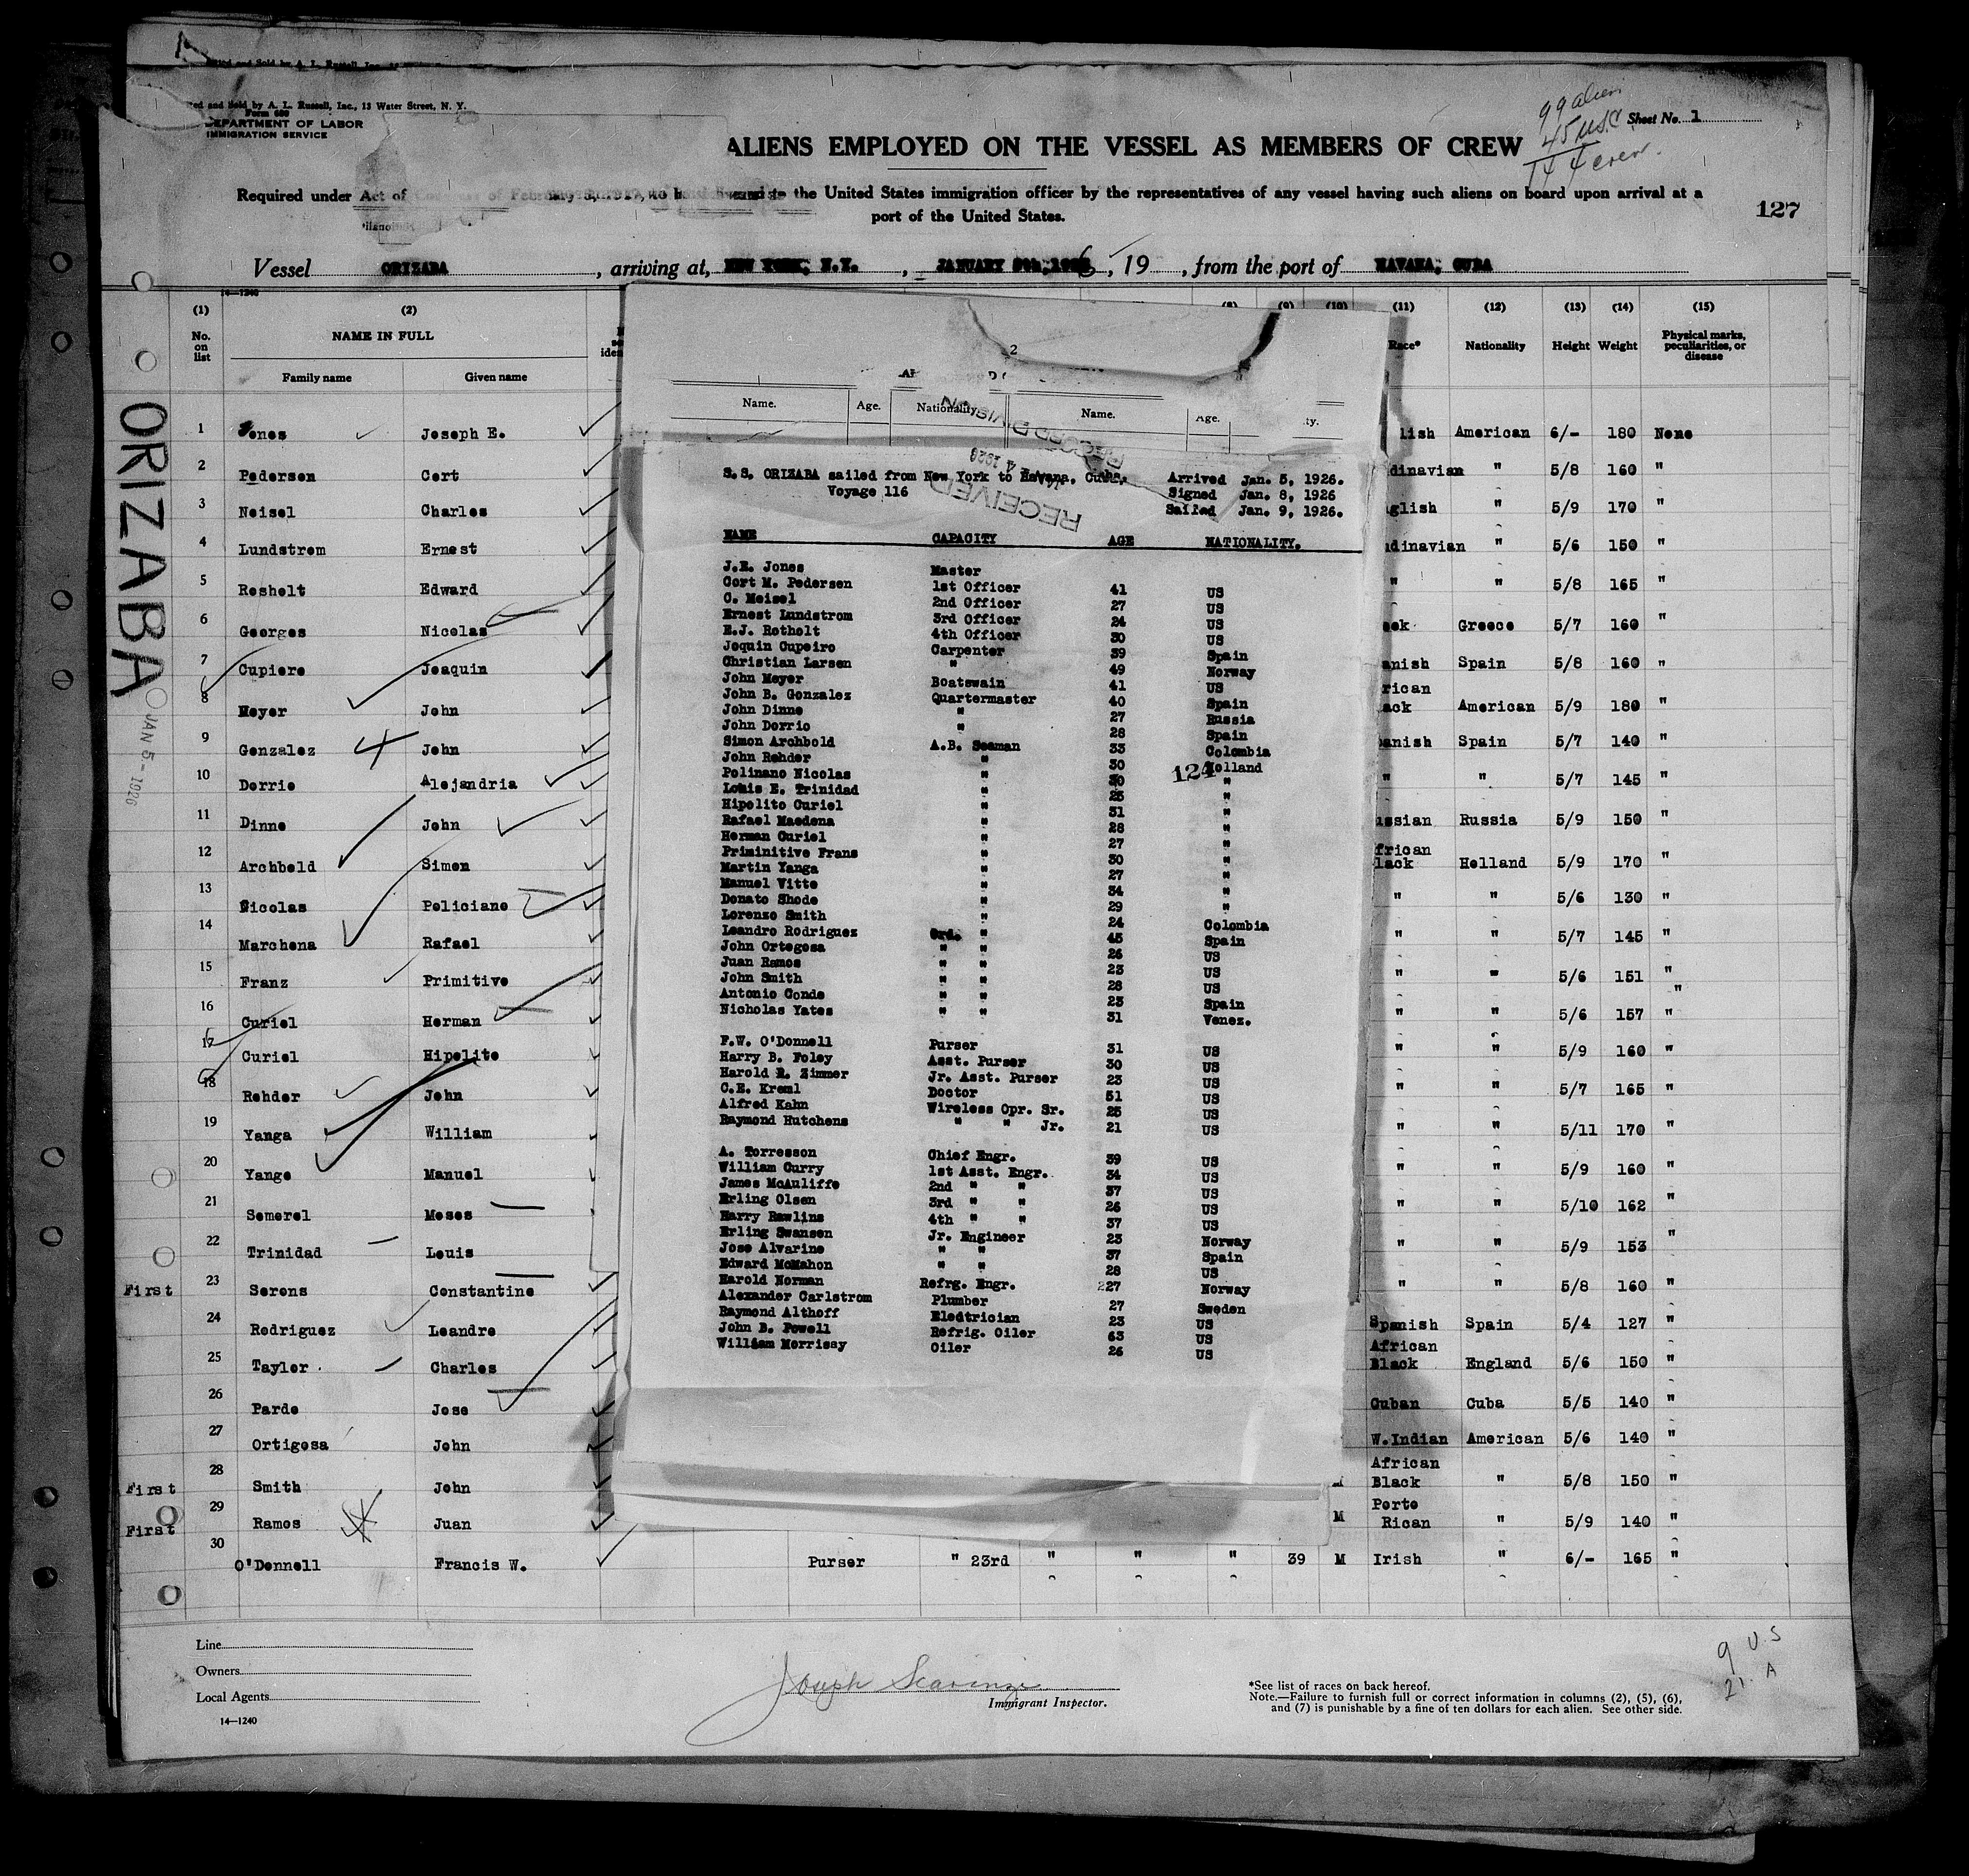 ed and Sold by A. L. Russell, Inc., 13 Water Street, N. Y.
Form 680
DEPARTMENT OF LABOR
IMMIGRATION SERVICE
99 alien
45 U.S.C
144 crew.
Sheet No. 1
ALIENS EMPLOYED ON THE VESSEL AS MEMBERS OF CREW
Required under Act of Congress of February 5, 1917, to be delivered to the United States immigration officer by the representatives of any vessel having such aliens on board upon arrival at a
port of the United States.
127
Vessel ORIZABA, arriving at, NEW YORK, N.Y., JANUARY 5th, 1926, 19 , from the port of HAVANA, CUBA
14—1240
(1) (2) (8) (9) (10) (11) (12) (13) (14) (15)
No. on list NAME IN FULL Race* Nationality Height Weight Physical marks, peculiarities, or disease
Family name Given name
ORIZABA
JAN 5 - 1926
1 Jones Joseph E. lish American 6/- 180 None
2 Pedersen Cort dinavian " 5/8 160 "
3 Neisel Charles glish " 5/9 170 "
4 Lundstrom Ernest dinavian " 5/6 150 "
5 Resholt Edward " " 5/8 165 "
6 Georges Nicolas eek Greece 5/7 160 "
7 Cupiere Joaquin anish Spain 5/8 160 "
8 Meyer John rican ack American 5/9 180 "
9 Gonzalez John anish Spain 5/7 140 "
10 Dorrie Alejandria " " 5/7 145 "
11 Dinne John ussian Russia 5/9 150 "
12 Archbold Simon frican lack Holland 5/9 170 "
13 Nicolas Policiano " " 5/6 130 "
14 Marchena Rafael " " 5/7 145 "
15 Franz Primitive " " 5/6 151 "
16 Curiel Herman " " 5/6 157 "
17 Curiel Hipolito " " 5/9 160 "
18 Rehder John " " 5/7 165 "
19 Yanga William " " 5/11 170 "
20 Yange Manuel " " 5/9 160 "
21 Semerel Moses " " 5/10 162 "
22 Trinidad Louis " " 5/9 153 "
First 23 Serons Constantine " " 5/8 160 "
24 Rodriguez Leandro Spanish Spain 5/4 127 "
25 Tayler Charles African Black England 5/6 150 "
26 Pardo Jose Cuban Cuba 5/5 140 "
27 Ortigosa John W.Indian American 5/6 140 "
First 28 Smith John African Black " 5/8 150 "
First 29 Ramos Juan M Porto Rican " 5/9 140 "
30 O'Donnell Francis W. Purser " 23rd " " " 39 M Irish " 6/- 165 "
2
Name. Age. Nationality Name. Age. ty.
RECEIVED
RECORD DIVISION
S.S. ORIZABA sailed from New York to Havana, Cuba. Arrived Jan. 5, 1926.
Voyage 116 Signed Jan. 8, 1926
Sailed Jan. 9, 1926.
NAME CAPACITY AGE NATIONALITY.
J.E. Jones Master
Cort M. Pedersen 1st Officer 41 US
C. Meisel 2nd Officer 27 US
Ernest Lundstrom 3rd Officer 24 US
E.J. Rotholt 4th Officer 30 US
Joquin Cupeiro Carpenter 39 Spain
Christian Larsen " 49 Norway
John Meyer Boatswain 41 US
John B. Gonzalez Quartermaster 40 Spain
John Dinne " 27 Russia
John Dorrio " 28 Spain
Simon Archbold A.B. Seaman 33 Colombia
John Rehder " 30 Holland
124
Polinano Nicolas " 30 "
Louis E. Trinidad " 25 "
Hipolito Curiel " 31 "
Rafael Maedena " 28 "
Herman Curiel " 27 "
Priminitive Frans " 30 "
Martin Yanga " 27 "
Manuel Vitto " 34 "
Donato Shode " 29 "
Lorenzo Smith " 24 Colombia
Leandro Rodriguez Ord. " 45 Spain
John Ortegosa " " 26 US
Juan Ramos " " 23 US
John Smith " " 28 US
Antonio Conde " " 23 Spain
Nicholas Yates " " 31 Venez.
F.W. O'Donnell Purser 31 US
Harry B. Foley Asst. Purser 30 US
Harold R. Zimmer Jr. Asst. Purser 23 US
C.E. Kreml Doctor 51 US
Alfred Kahn Wireless Opr. Sr. 25 US
Raymond Hutchens " " Jr. 21 US
A. Torresson Chief Engr. 39 US
William Curry 1st Asst. Engr. 34 US
James McAuliffe 2nd " " 37 US
Erling Olsen 3rd " " 26 US
Harry Rawlins 4th " " 37 US
Erling Swansen Jr. Engineer 23 Norway
Jose Alvarine " " 37 Spain
Edward McMahon " " 28 US
Harold Norman Refrg. Engr. 227 Norway
Alexander Carlstrom Plumber 27 Sweden
Raymond Althoff Eledtrician 23 US
John B. Powell Refrig. Oiler 63 US
William Morrissy Oiler 26 US
Line
Owners
Local Agents
14—1240
Joseph Scaringi
Immigrant Inspector.
*See list of races on back hereof.
Note.—Failure to furnish full or correct information in columns (2), (5), (6),
and (7) is punishable by a fine of ten dollars for each alien. See other side.
9 U.S
21 A